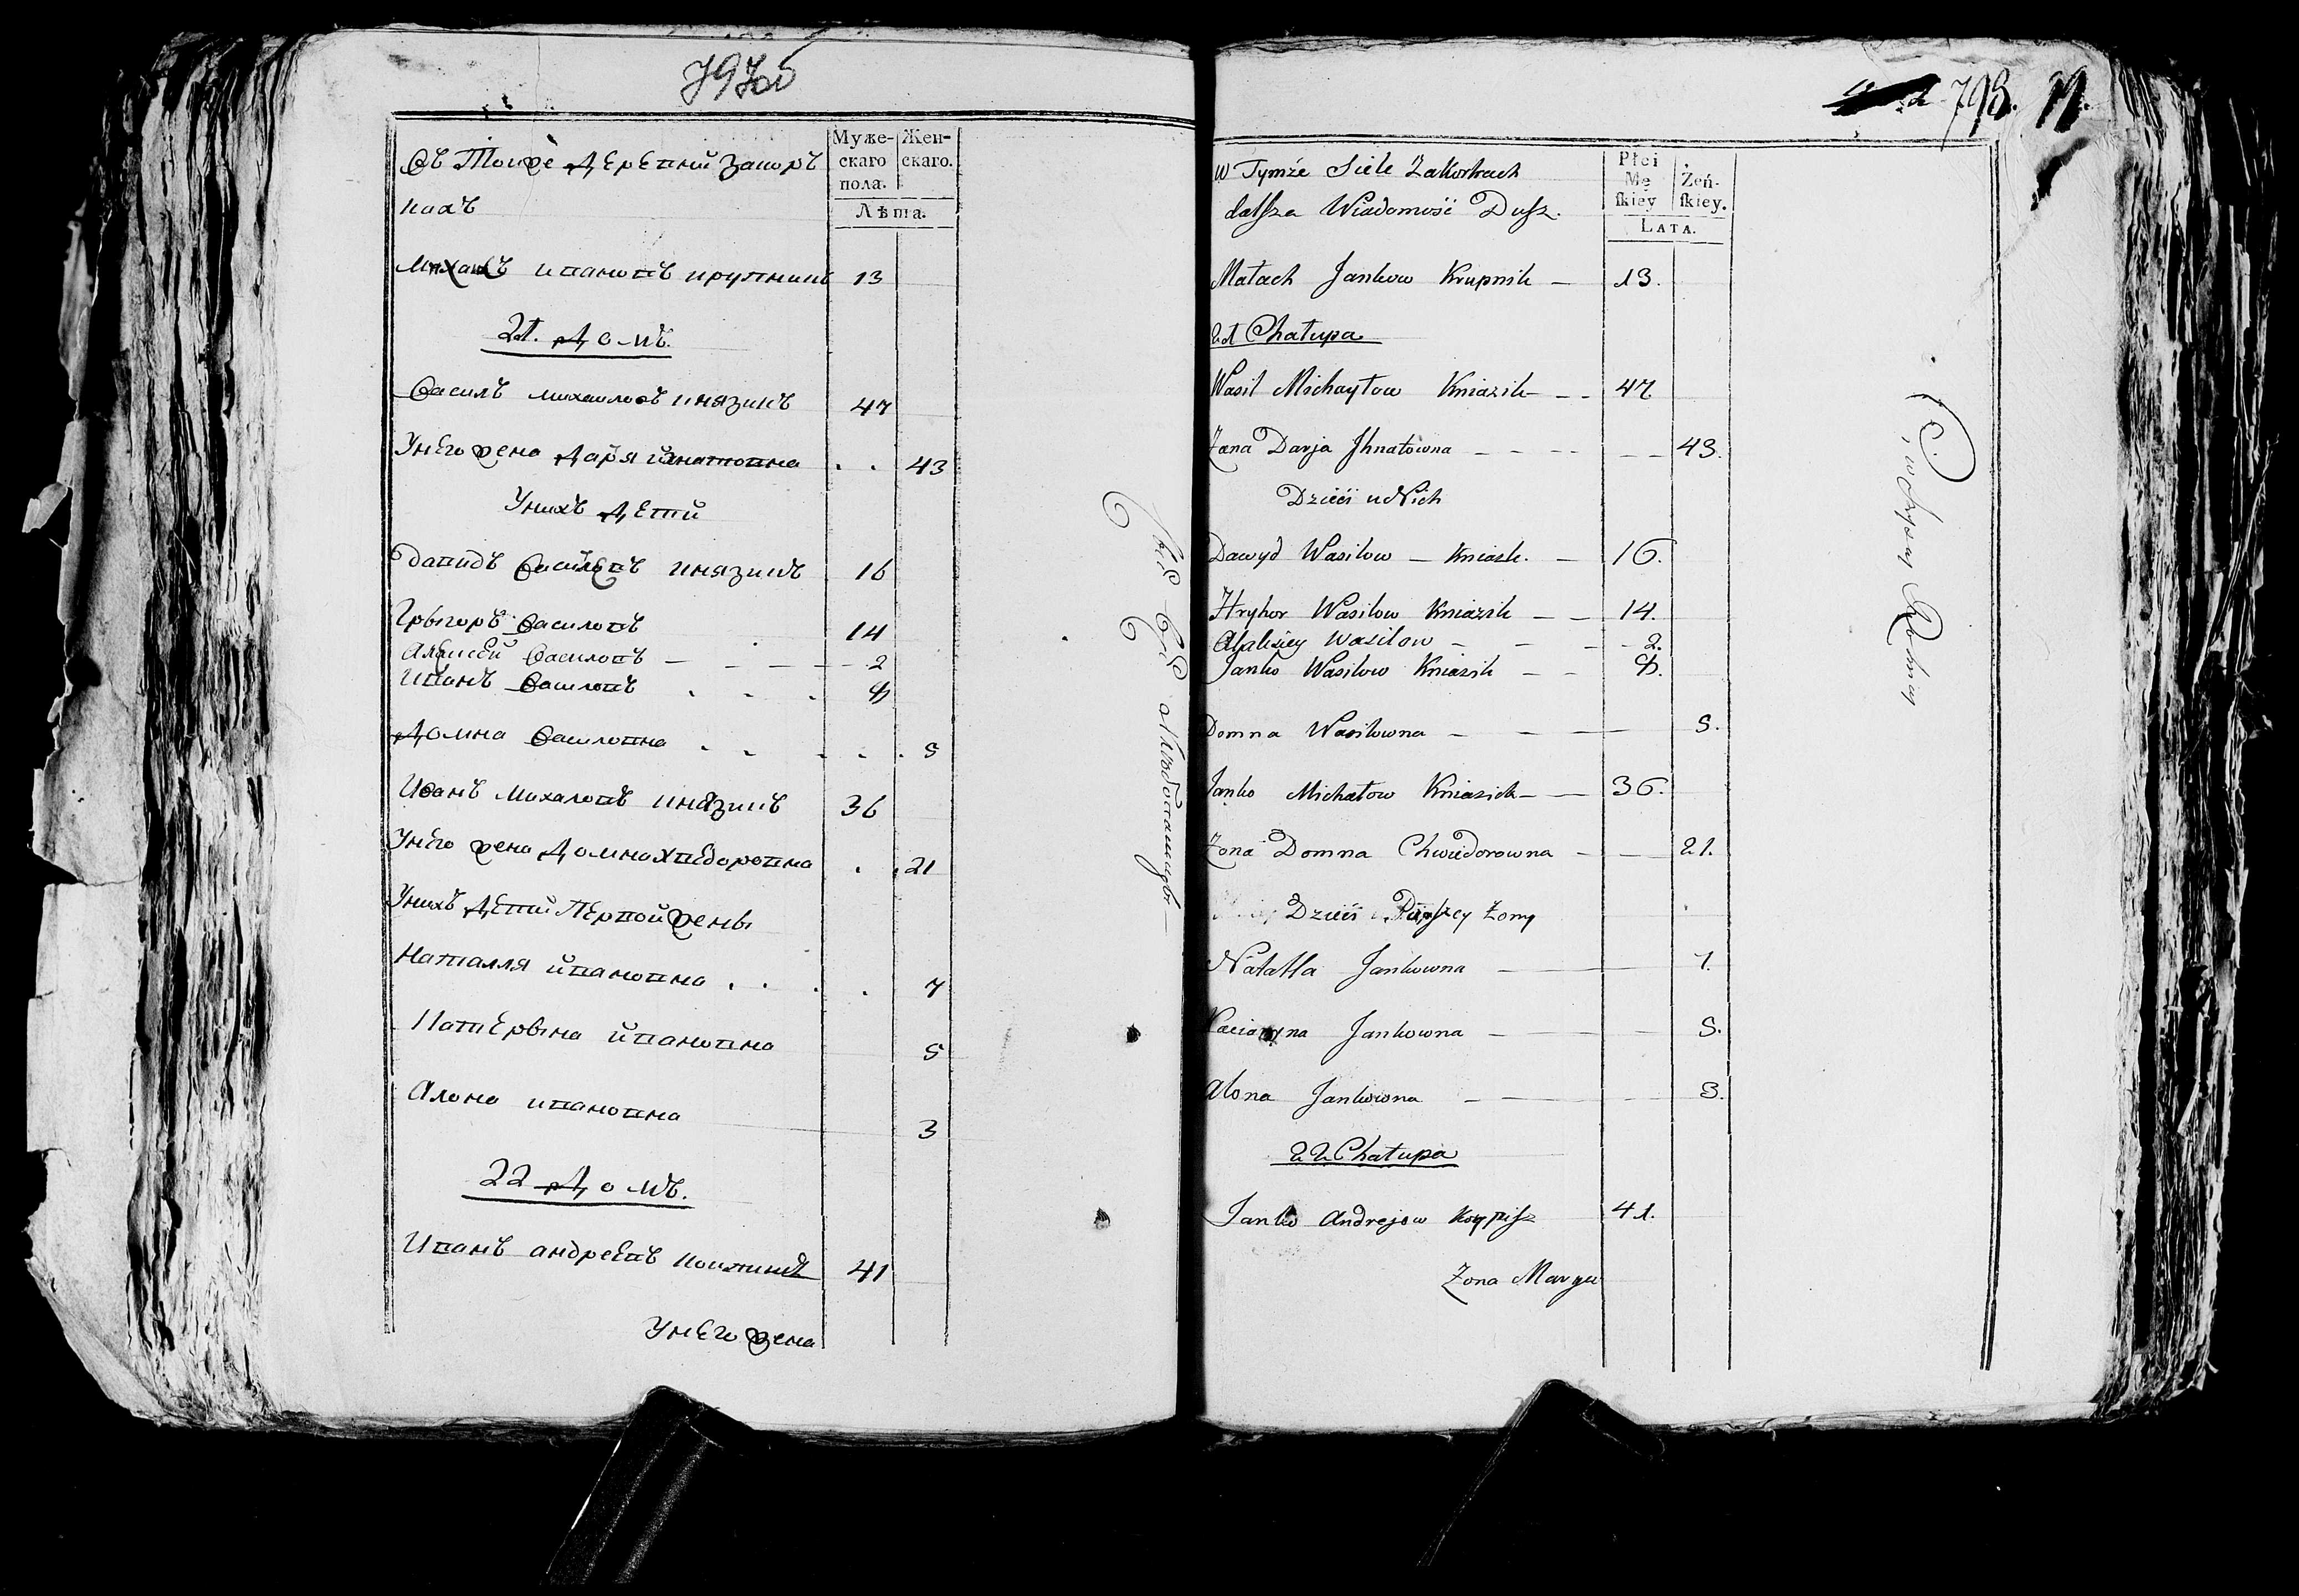 797об
Муже-
скаго
пола.
Жен-
скаго.
Лѣта.
Въ Тойже деревни Закоръ
кахъ
Ивановъ Крупникъ 13
21. Домъ.
Василь Михаиловъ Князикъ 47
Унего жена Дарья Игнатовна 43
Унихъ дети
Давидъ Василевъ Князикъ 16
Грыгоръ Василовъ 14
Алексей Василовъ 2
Иванъ Василовъ 8
Домна Василовна 5
Иванъ Михаловъ Князикъ 36
Унего жена Домна Хведоровна 21
Унихъ дети Первой жены
Наталля Ивановна 7
Катерына Ивановна 5
Алона Ивановна 3
22 Домъ.
Иванъ Андреевъ 41
Унего жена
798.
Płci
Mę
ſkiey
Żeń-
ſkiey.
LATA.
w Tymże Siele Zakorkach
dalſza Wiadomość Duſz.
Małach Jankow Krupnik — 13.
21 Chałupa
Wasil Michayłow Kniazik — 47
Żona Darja Jhnatowna — 43.
Dzieci u Nich
Dawyd Wasilow — Kniazik. — 16.
Hryhor Wasilow Kniazik — 14.
Alaksiey Wasilow — 2.
Janko Wasilow Kniazik — 8.
Domna Wasilowna — 5.
Janko Michałow Kniazik — 36.
Żona Domna Chwiedorowna — 21.
Dzieci Pierſzey Żony
Natalla Jankowna — 7.
Kaciaryna Jankowna — 5.
Alona Jankowna — 3.
22 Chałupa
Janko Andrejow 41.
Żona Marya